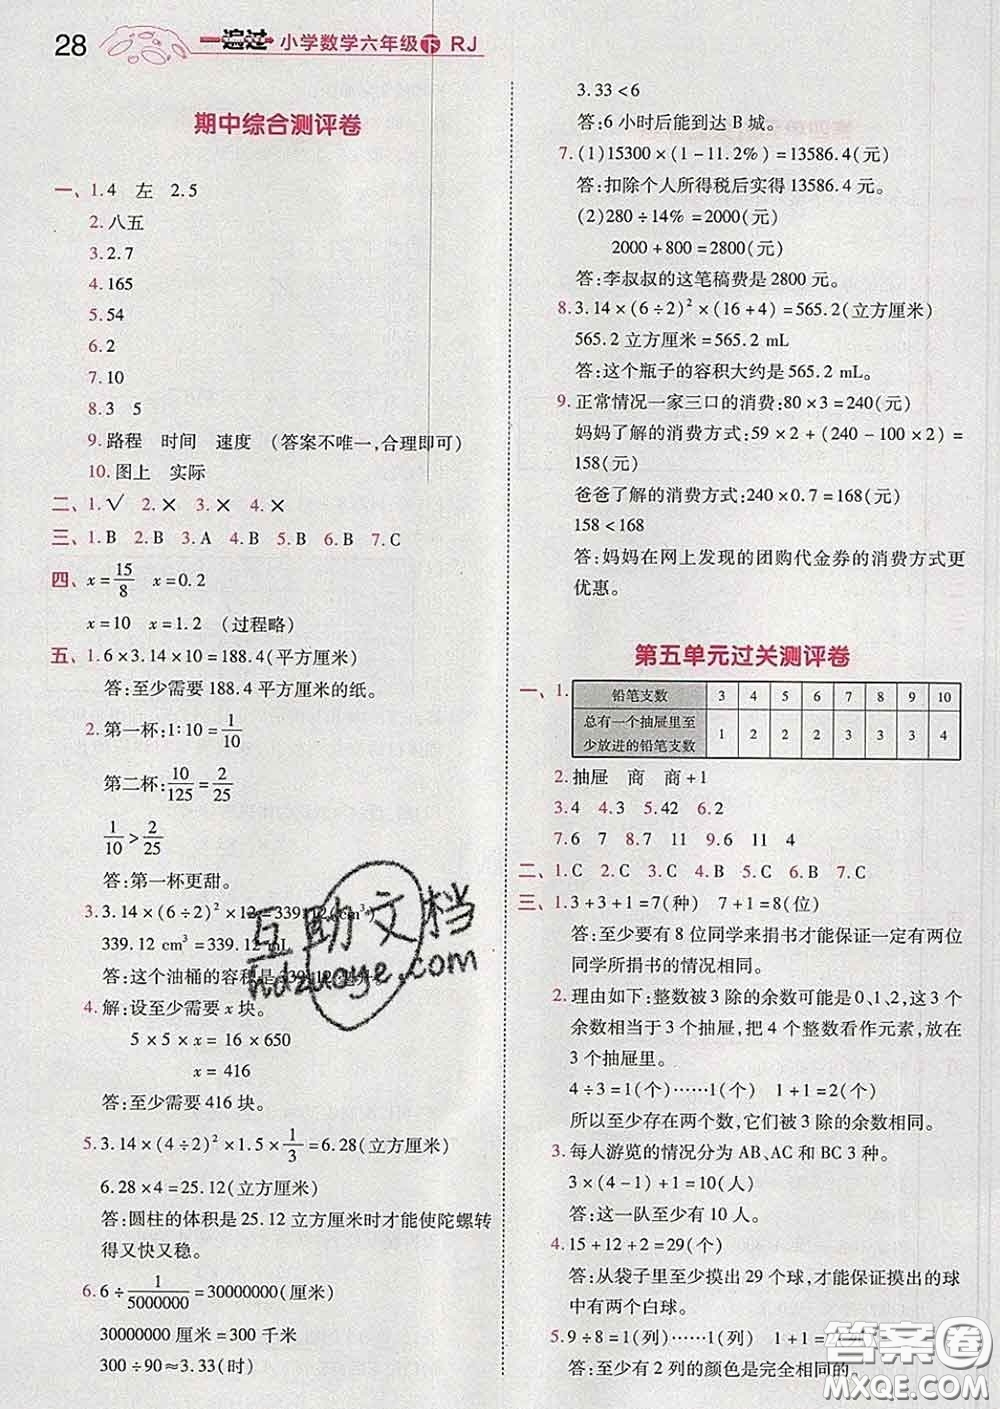 28 一遍过 小学数学六年级下 RJ
期中综合测评卷
一、1.4 左 2.5
2.八五
3.2.7
4.165
5.54
6.2
7.10
8.3 5
9.路程 时间 速度 (答案不唯一,合理即可)
10.图上 实际
二、1.√ 2.× 3.× 4.×
三、1.B 2.B 3.A 4.B 5.B 6.B 7.C
四、x=15/8 x=0.2
x=10 x=1.2 (过程略)
五、1.6×3.14×10=188.4(平方厘米)
答:至少需要188.4平方厘米的纸。
2.第一杯:1:10=1/10
第二杯:10/125=2/25
1/10>2/25
答:第一杯更甜。
3.3.14×(6÷2)²×12=339.12(cm³)
339.12 cm³=339.12 mL
答:这个油桶的容积是339.12毫升。
4.解:设至少需要x块。
5×5×x=16×650
x=416
答:至少需要416块。
5.3.14×(4÷2)²×1.5×1/3=6.28(立方厘米)
6.28×4=25.12(立方厘米)
答:圆柱的体积是25.12立方厘米时才能使陀螺转
得又快又稳。
6.6÷1/5000000=30000000(厘米)
30000000厘米=300千米
300÷90≈3.33(时)
3.33<6
答:6小时后能到达B城。
7.(1)15300×(1-11.2%)=13586.4(元)
答:扣除个人所得税后实得13586.4元。
(2)280÷14%=2000(元)
2000+800=2800(元)
答:李叔叔的这笔稿费是2800元。
8.3.14×(6÷2)²×(16+4)=565.2(立方厘米)
565.2立方厘米=565.2 mL
答:这个瓶子的容积大约是565.2 mL。
9.正常情况一家三口的消费:80×3=240(元)
妈妈了解的消费方式:59×2+(240-100×2)=
158(元)
爸爸了解的消费方式:240×0.7=168(元)
158<168
答:妈妈在网上发现的团购代金券的消费方式更
优惠。
第五单元过关测评卷
一、1. 铅笔支数 3 4 5 6 7 8 9 10
总有一个抽屉里至
少放进的铅笔支数 1 2 2 2 3 3 3 4
2.抽屉 商 商+1
3.4 4.3 5.42 6.2
7.6 7 8.7 11 9.11 4
二、1.C 2.C 3.C 4.B 5.C 6.B 7.C
三、1.3+3+1=7(种) 7+1=8(位)
答:至少要有8位同学来捐书才能保证一定有两位
同学所捐书的情况相同。
2.理由如下:整数被3除的余数可能是0、1、2,这3个
余数相当于3个抽屉,把4个整数看作元素,放在
3个抽屉里。
4÷3=1(个)……1(个) 1+1=2(个)
所以至少存在两个数,它们被3除的余数相同。
3.每人游览的情况分为AB、AC和BC 3种。
3×(4-1)+1=10(人)
答:这一队至少有10人。
4.15+12+2=29(个)
答:从袋子里至少摸出29个球,才能保证摸出的球
中有两个白球。
5.9÷8=1(列)……1(列) 1+1=2(列)
答:至少有2列的颜色是完全相同的。
互助文档
hdzuoye.com
答案圈
MXQE.COM